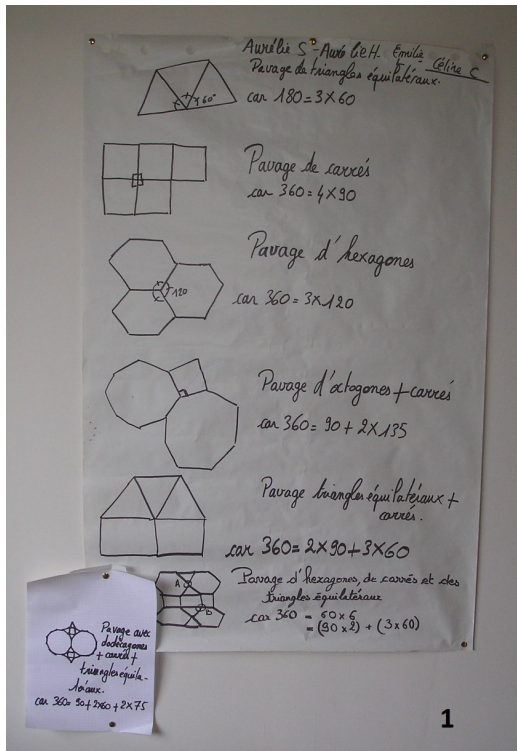 Aurélie S - Aurélie H. Emilie Céline C
Pavage de triangles équilatéraux.
60°
car 180 = 3 X 60
Pavage de carrés
car 360 = 4 X 90
Pavage d'hexagones
120
car 360 = 3 X 120
Pavage d'octogones + carrés
car 360 = 90 + 2 X 135
Pavage triangles équilatéraux +
carrés.
car 360 = 2 X 90 + 3 X 60
A
B
Pavage d'hexagones, de carrés et des
triangles équilatéraux
car 360 = 60 x 6
= (90 x 2) + (3 x 60)
Pavage avec
dodécagones
+ carrés +
triangles équila-
téraux.
car 360 = 90 + 2x60 + 2 X 75
1